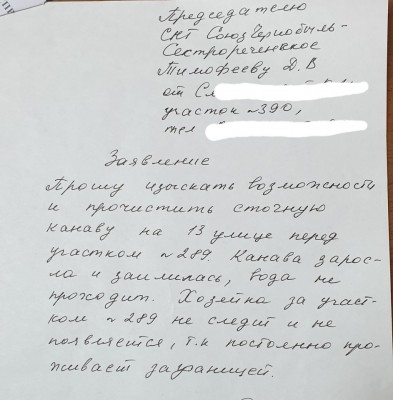 Председателю
СНТ СоюзЧернобыль-
Сестрорецкое
Тимофееву Д.В
от Сл
участок №390,
тел
Заявление
Прошу изыскать возможности
и прочистить сточную
канаву на 13 улице перед
участком №289. Канава зарос-
ла и заилилась, вода не
проходит. Хозейка за участ-
ком №289 не следит и не
появляется, т.к постоянно про-
живает заграницей.